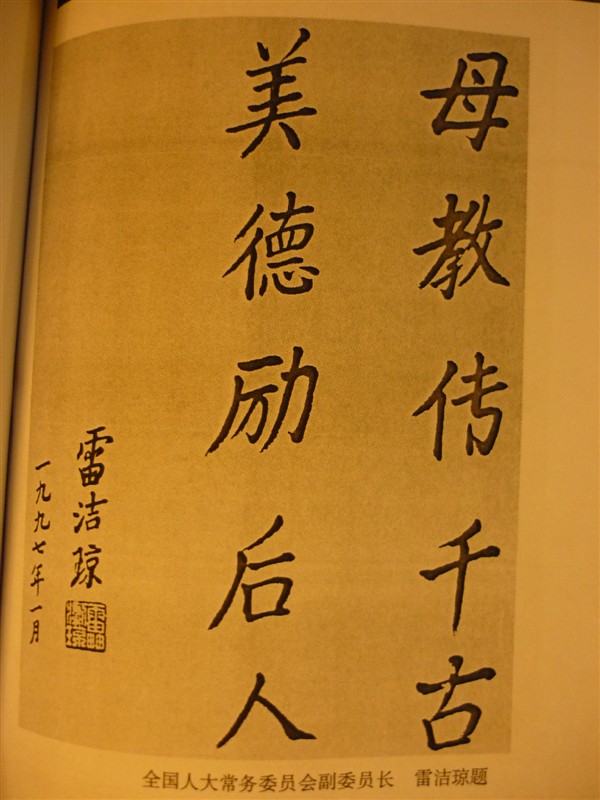 母教传千古
美德励后人
雷洁琼
一九九七年一月
全国人大常务委员会副委员长 雷洁琼题